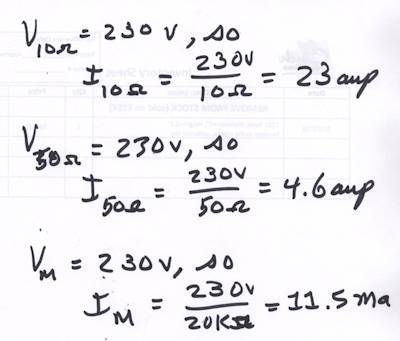 V10Ω = 230 V, so
I10Ω = 230V / 10Ω = 23 amp
V50Ω = 230V, so
I50Ω = 230V / 50Ω = 4.6 amp
VM = 230V, so
IM = 230V / 20KΩ = 11.5 ma